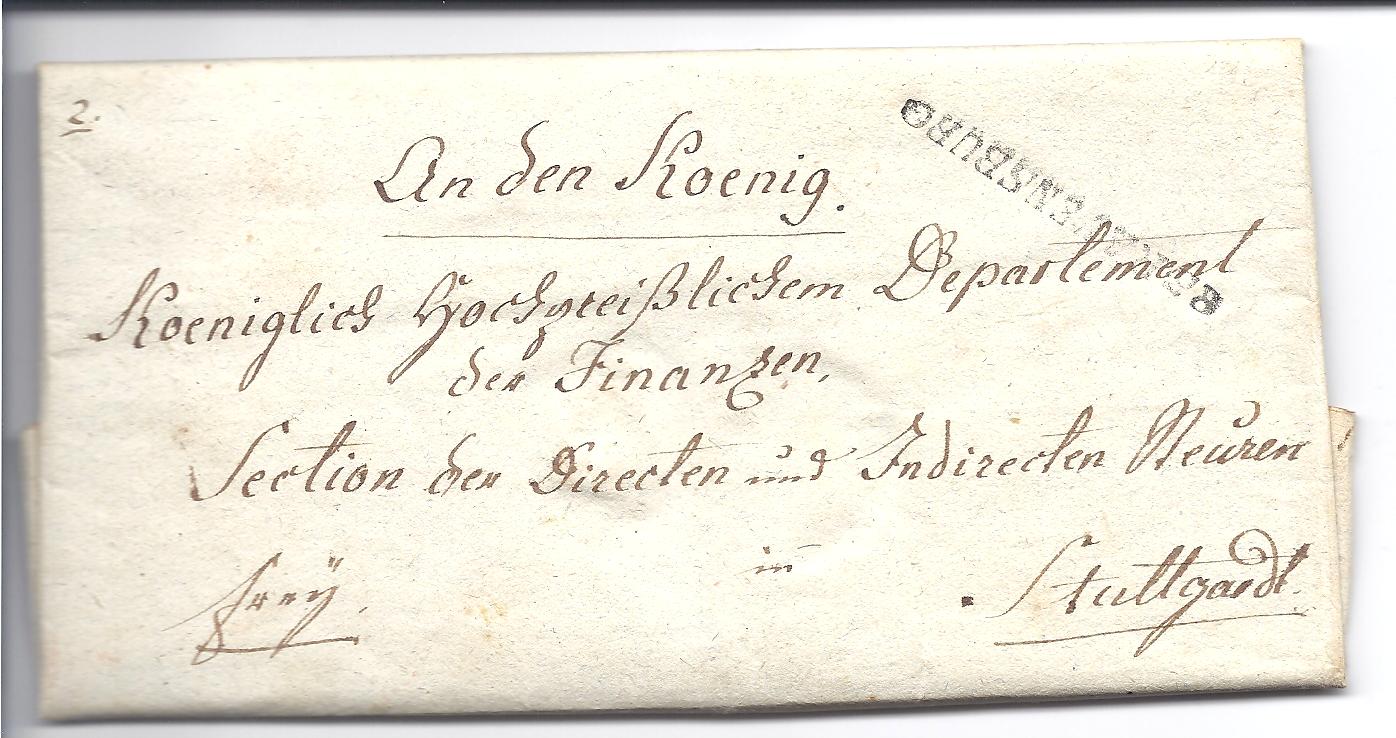 2.
An den Koenig.
Koeniglich Hochpreißlichem Departement
der Finanzen,
Section der Directen und Indirecten Steuren
in
frey. Stuttgardt.